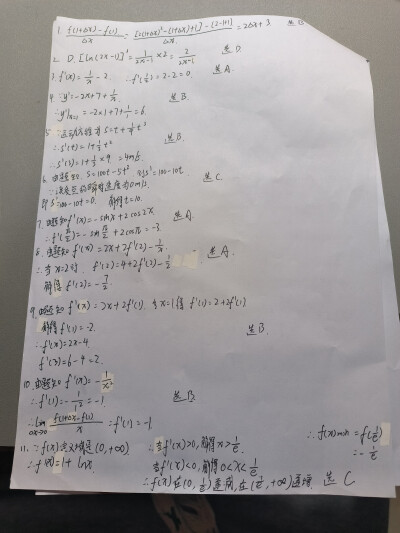 1. f(1+Δx)-f(1)/Δx = [2(1+Δx)²-(1+Δx)+1]-(2-1+1)/Δx = 2Δx+3 选B
2. D. [ln(2x-1)]' = 1/(2x-1) ×2 = 2/(2x-1) 选D.
3. f'(x)=1/x-2. ∴f'(1/2)=2-2=0. 选A.
4. ∵y'=-2x+7+1/x. 选B.
∴y'|x=1=-2×1+7+1/1=6.
5. ∵运动方程为S=t+1/9t³
∴s'(t)=1+1/3t² 选B.
∴s'(3)=1+1/3×9=4m/s.
6. 由题知. S=100t-5t² 则s'=100-10t. 选C.
即s'=100-10t=0. 解得t=10.
7. 由题知f'(x)=-sinx+2cos2x 选A.
∴f'(π/2)=-sinπ/2+2cosπ=-3.
8. 由题知f'(x)=2x+2f'(2)-1/x. 选A.
∴当x=2时. f'(2)=4+2f'(2)-1/2
解得f'(2)=-7/2.
9. 由题知f'(x)=2x+2f'(1). 令x=1得f'(1)=2+2f'(1)
解得f'(1)=-2. 选B.
∴f'(x)=2x-4.
f'(3)=6-4=2.
10. 由题知f'(x)=-1/x²
∴f'(1)=-1/1²=-1. 选B
∴lim Δx→0 f(1+Δx)-f(1)/x=f'(1)=-1.
11. ∵f(x)定义域是(0,+∞) ∴当f'(x)>0,解得x>1/e. ∴f(x)min=f(1/e)
∴f'(x)=1+lnx. 当f'(x)<0,解得0<x<1/e =-1/e
∴f(x)在(0,1/e)递减,在(1/e,+∞)递增. 选C